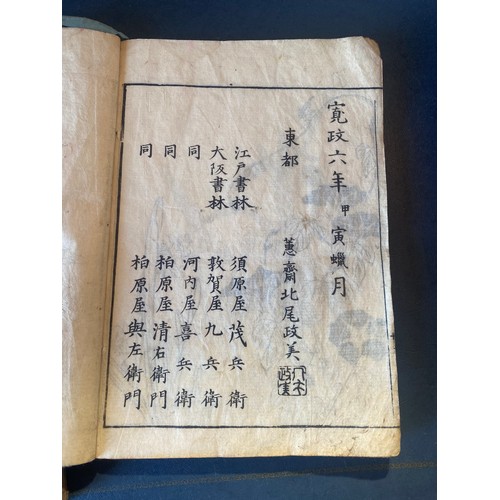 寛政六年 甲寅蠟月
東都 蕙齋北尾政美
江戸書林 須原屋茂兵衛
大阪書林 敦賀屋九兵衛
同 河内屋喜兵衛
同 柏原屋清右衛門
同 柏原屋與左衛門